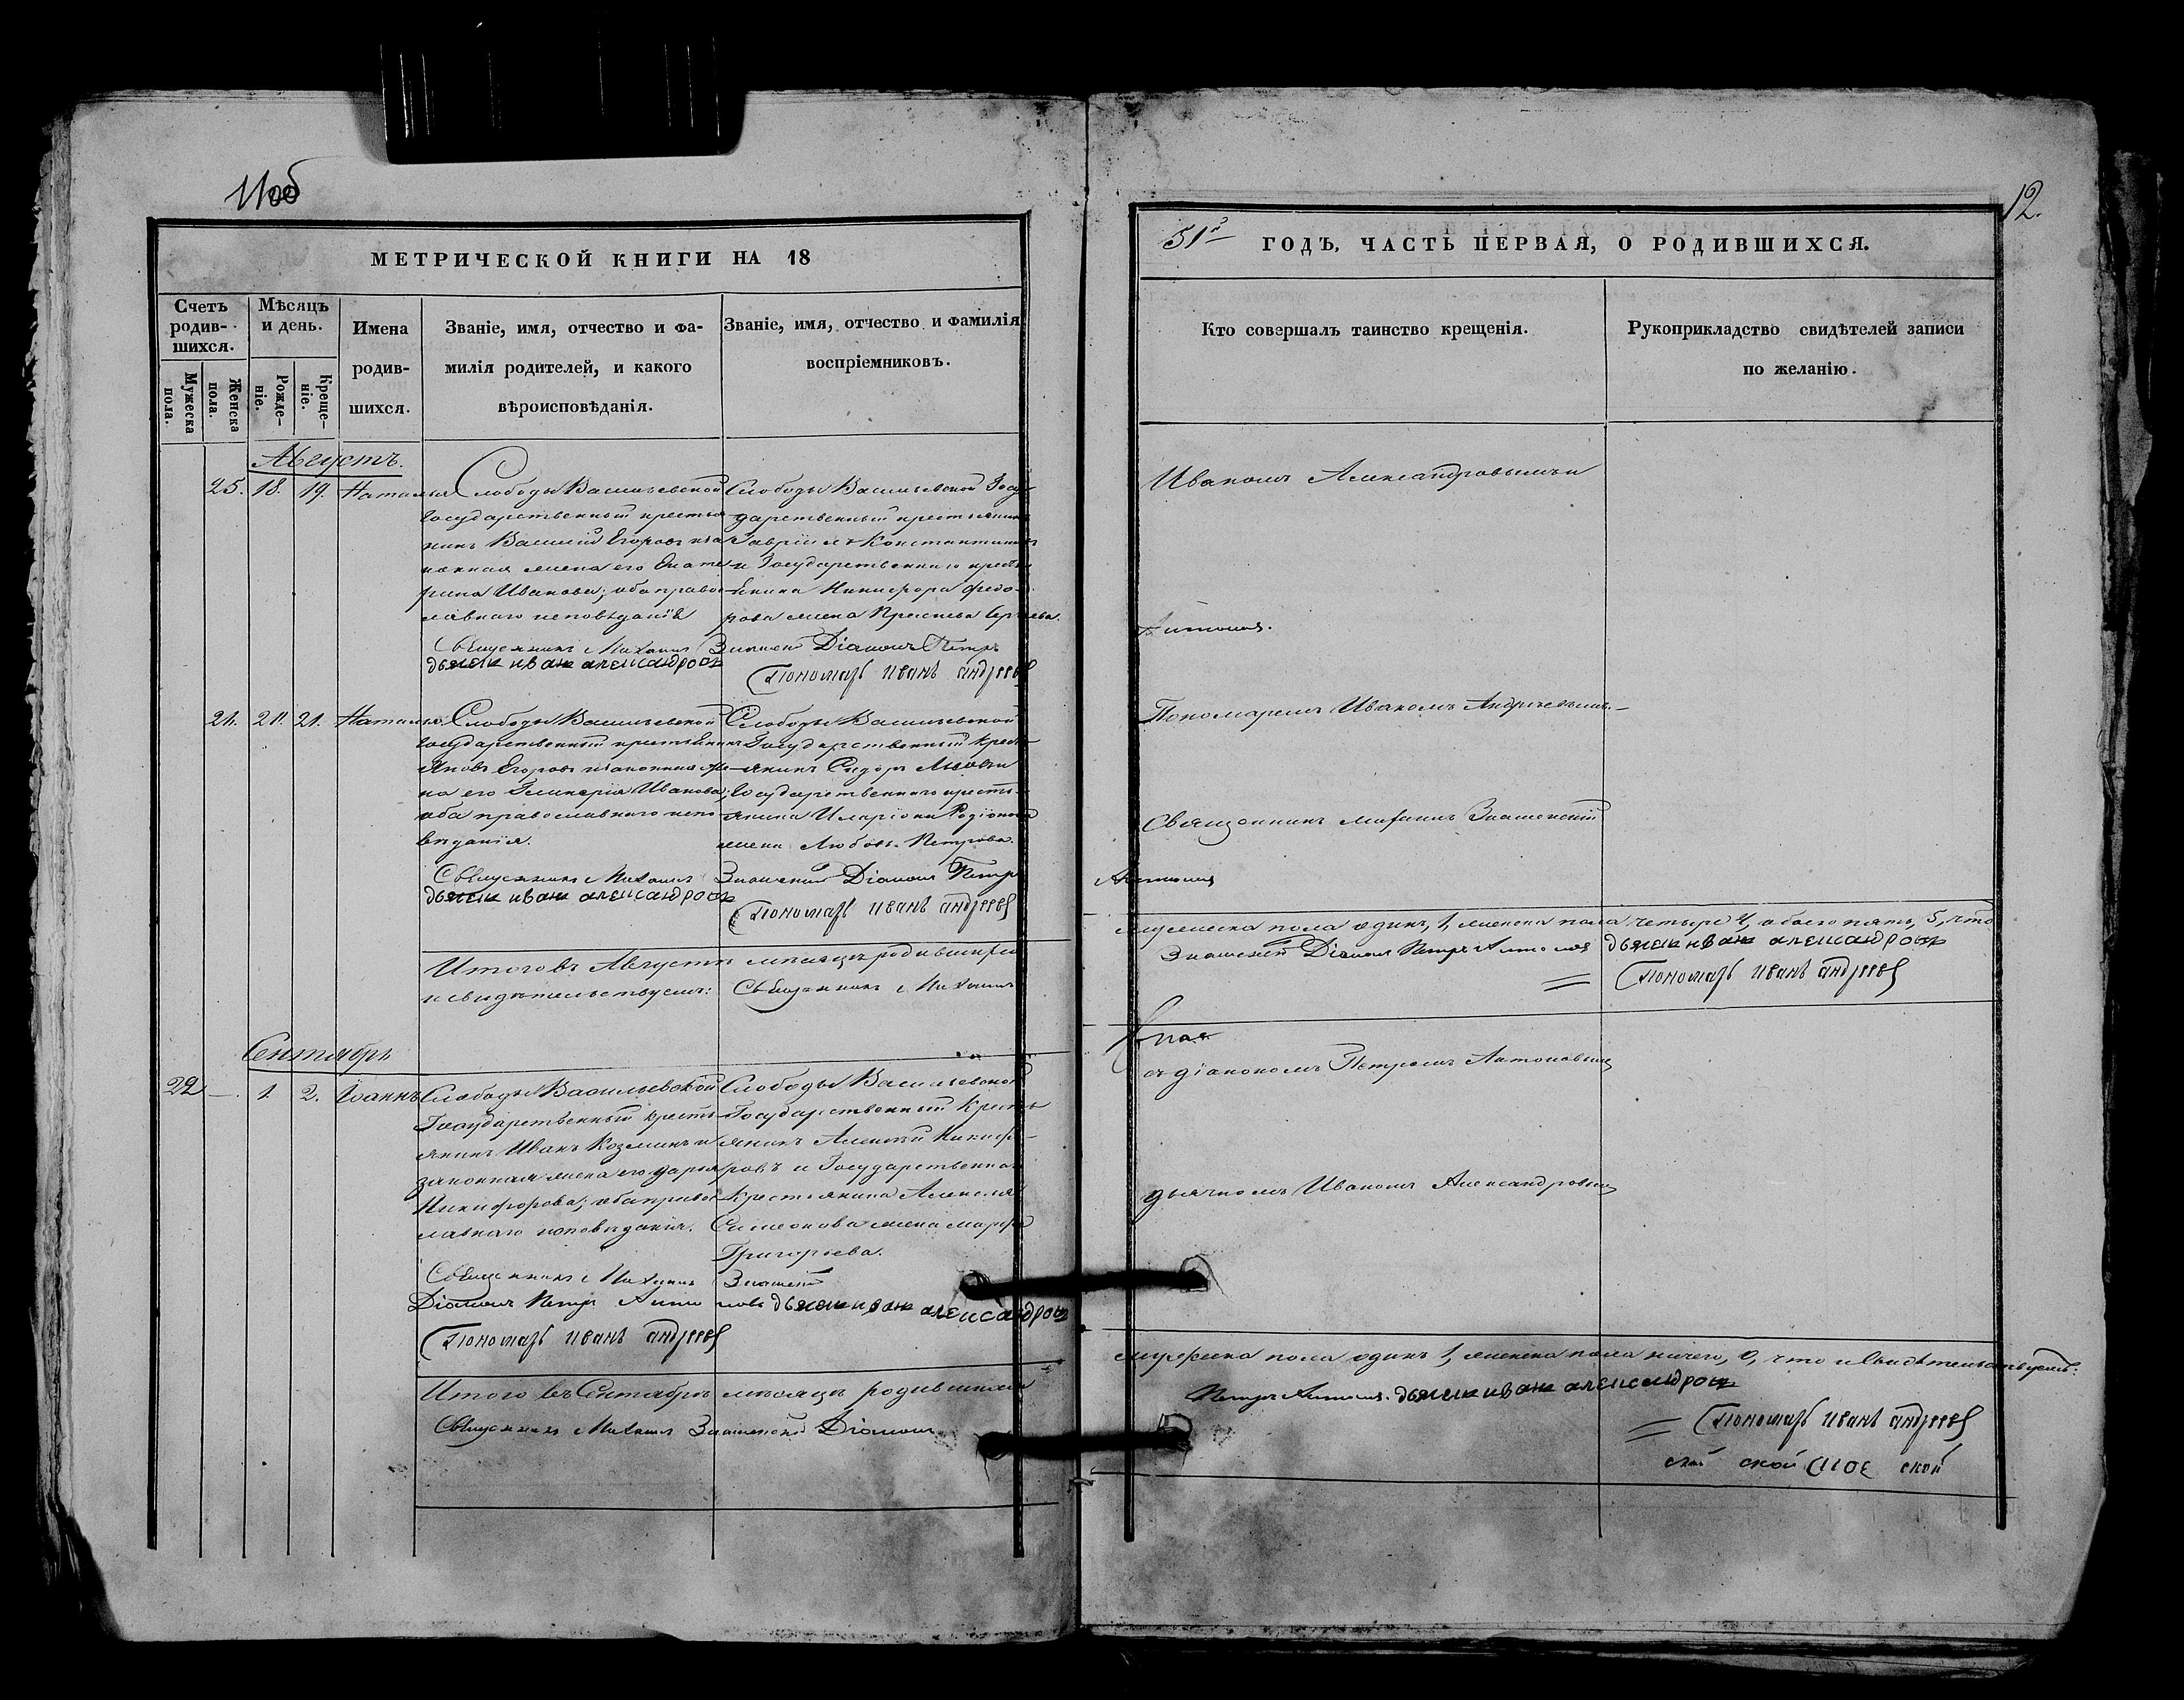 11об
МЕТРИЧЕСКОЙ КНИГИ НА 18
Счетъ родив-шихся.
Мѣсяцъ и день.
Имена родив-шихся.
Званіе, имя, отчество и фа-
милія родителей, и какого
вѣроисповѣданія.
Званіе, имя, отчество и фамилія
воспріемниковъ.
Мужеска пола.
Женска пола.
Рожде-ніе.
Креще-ніе.
Августъ.
25. 18. 19. Наталья
Слободы Васильевской
Государственный крестья
нинъ Василій Егоровъ и за
конная жена его Екате
рина Иванова; оба право
славнаго исповѣданія
Слободы Васильевской Госу-
дарственный крестьянинъ
Гавріилъ Константиновъ
и Государственнаго кресть
янина Никифора Федо-
рова жена Прасковья Сергѣева.
Священникъ Михаилъ Знаменскій Діаконъ Петръ
дьячекъ иванъ александровъ
Пономарь иванъ андреевъ
21. 21. Наталья.
Слободы Васильевской
Государственный крестьянинъ
Яковъ Егоровъ и законная же
на его Гликерія Иванова;
оба православнаго испо
вѣданія.
Слободы Васильевской
Государственный кресть
янинъ Сидоръ
Государственнаго кресть-
янина Иларіона Родіонова
жена Любовь Петрова.
Священникъ Михаилъ Знаменскій Діаконъ Петръ
дьячекъ иванъ александровъ
Пономарь иванъ андреевъ
Итого въ Августѣ мѣсяцѣ родившихся
и свидѣтельствуемъ: Священникъ Михаилъ
Сентябрь
22 — 1. 2. Іоаннъ
Слободы Васильевской
Государственный кресть
янинъ Иванъ Козминъ и
законная жена его Дарья
Никифорова; оба право
славнаго исповѣданія.
Слободы Васильевской
Государственный Кресть
янинъ Алексѣй Никифо-
ровъ и Государственнаго
Крестьянина Алексѣя
Симеонова жена Марфа
Григорьева.
Священникъ Михаилъ Знаменскій
Діаконъ Петръ Антоновъ дьячекъ иванъ александровъ
Пономарь иванъ андреевъ
Итого въ Сентябрѣ мѣсяцѣ родившихся
Священникъ Михаилъ Знаменскій Діаконъ
12.
51й ГОДЪ, ЧАСТЬ ПЕРВАЯ, О РОДИВШИХСЯ.
Кто совершалъ таинство крещенія.
Рукоприкладство свидѣтелей записи
по желанію.
Иваномъ Александровымъ и
Антоновъ.
Пономаремъ Иваномъ Андреевымъ.
Священникъ Михаилъ Знаменскій
Антоновъ
мужеска пола одинъ, 1, женска пола четыре 4, обоего пять, 5, что
Знаменскій Діаконъ Петръ Антоновъ дьячекъ иванъ александровъ
Пономарь иванъ андреевъ
съ діакономъ Петромъ Антоновымъ
дьячкомъ Иваномъ Александровымъ
мужеска пола одинъ 1, женска пола ничего, 0, что и свидѣтельствуемъ:
Петръ Антоновъ. дьячекъ иванъ александровъ
Пономарь иванъ андреевъ